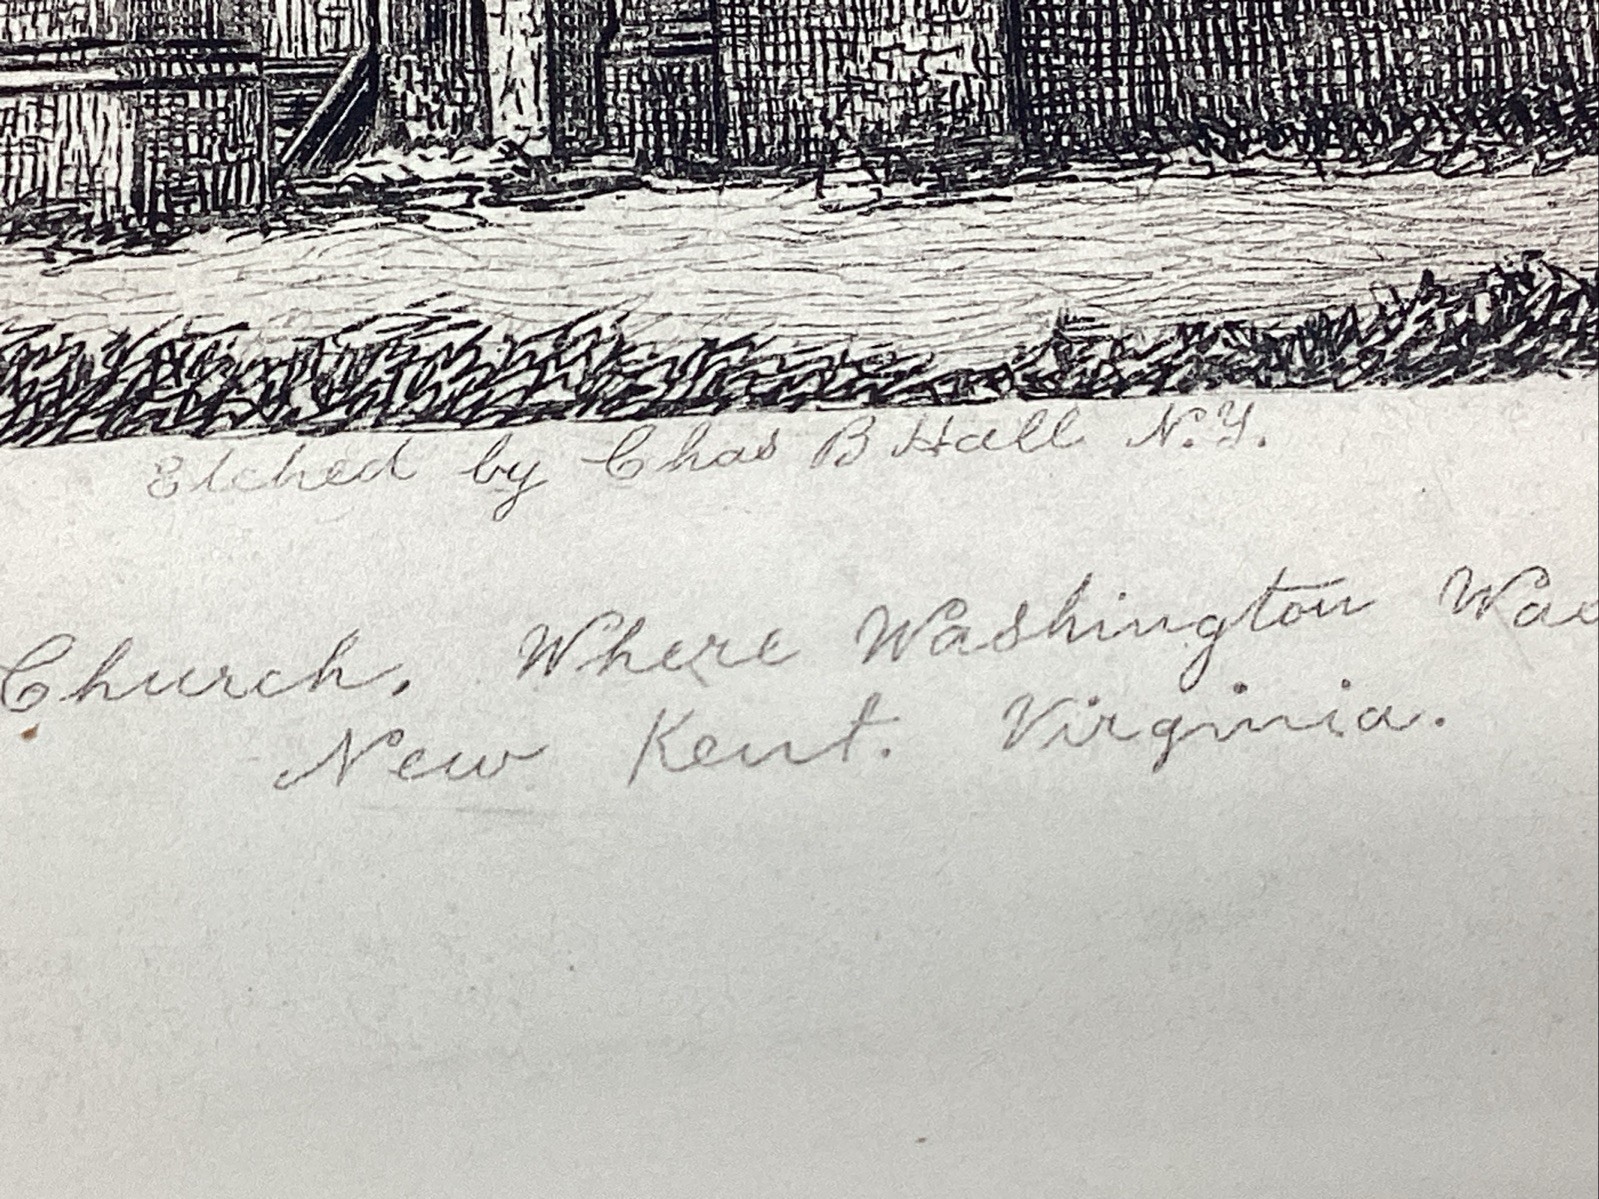 Etched by Chas B Hall N.Y.
Church, Where Washington Was
New Kent. Virginia.